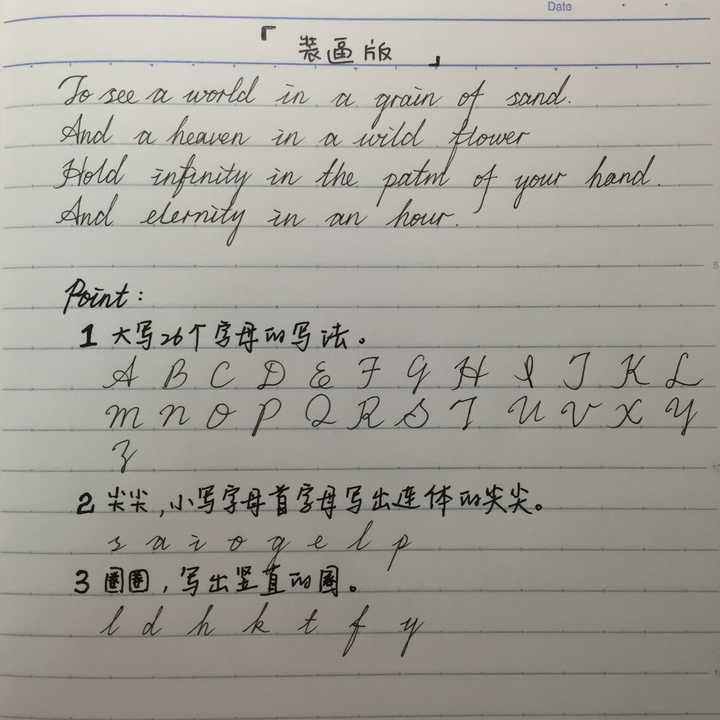 Date
「装逼版」
To see a world in a grain of sand.
And a heaven in a wild flower
Hold infinity in the palm of your hand.
And eternity in an hour.
Point:
1 大写26个字母的写法。
A B C D E F G H I J K L
M N O P Q R S T U V X Y
Z
2 尖尖,小写字母首字母写出连体的尖尖。
s a i o g e l p
3 圈圈,写出竖直的圈。
l d h k t f y